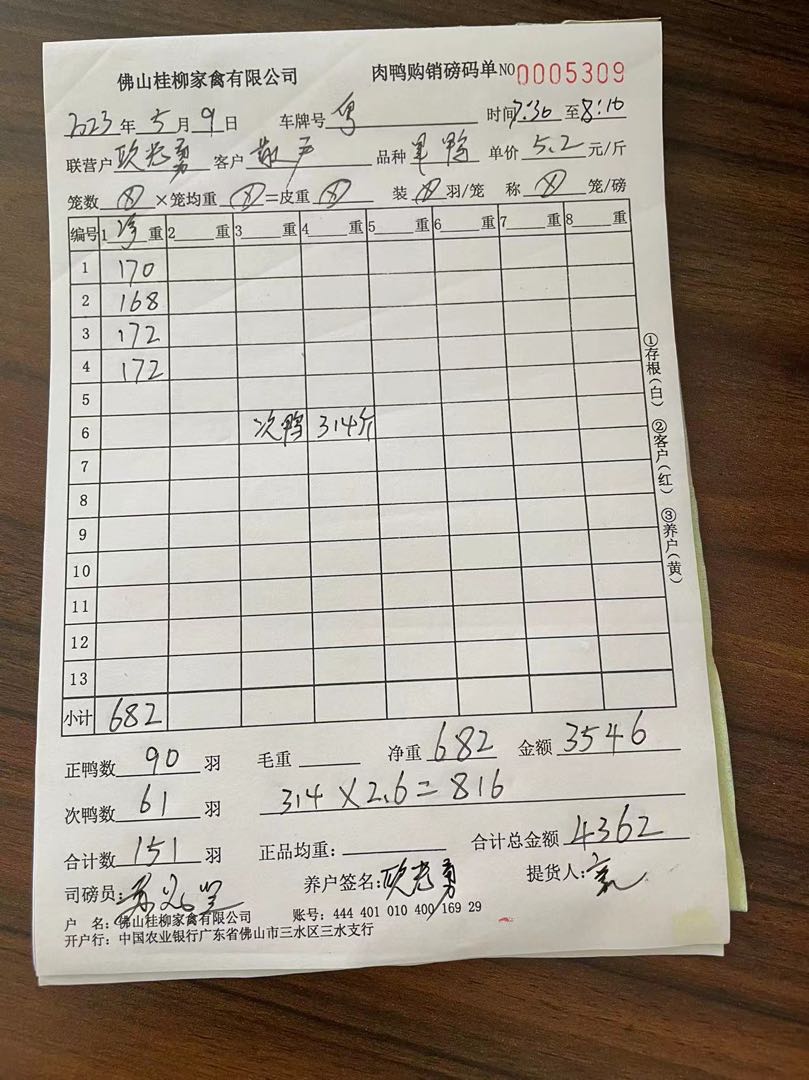 佛山桂柳家禽有限公司 肉鸭购销磅码单NO 0005309
2023年5月9日 车牌号 粤 时间7:30至8:10
联营户 欧志勇 客户 散户 品种 单价 5.2 元/斤
笼数 ×笼均重 =皮重 装 羽/笼 称 笼/磅
编号 1 净 重 2 重 3 重 4 重 5 重 6 重 7 重 8 重
1 170
2 168
3 172
4 172
5
6 次鸭 314斤
7
8
9
10
11
12
13
小计 682
①存根(白) ②客户(红) ③养户(黄)
正鸭数 90 羽 毛重 净重 682 金额 3546
次鸭数 61 羽 314×2.6=816
合计数 151 羽 正品均重: 合计总金额 4362
司磅员: 养户签名: 欧志勇 提货人:
户 名: 佛山桂柳家禽有限公司 账号: 444 401 010 400 169 29
开户行: 中国农业银行广东省佛山市三水区三水支行